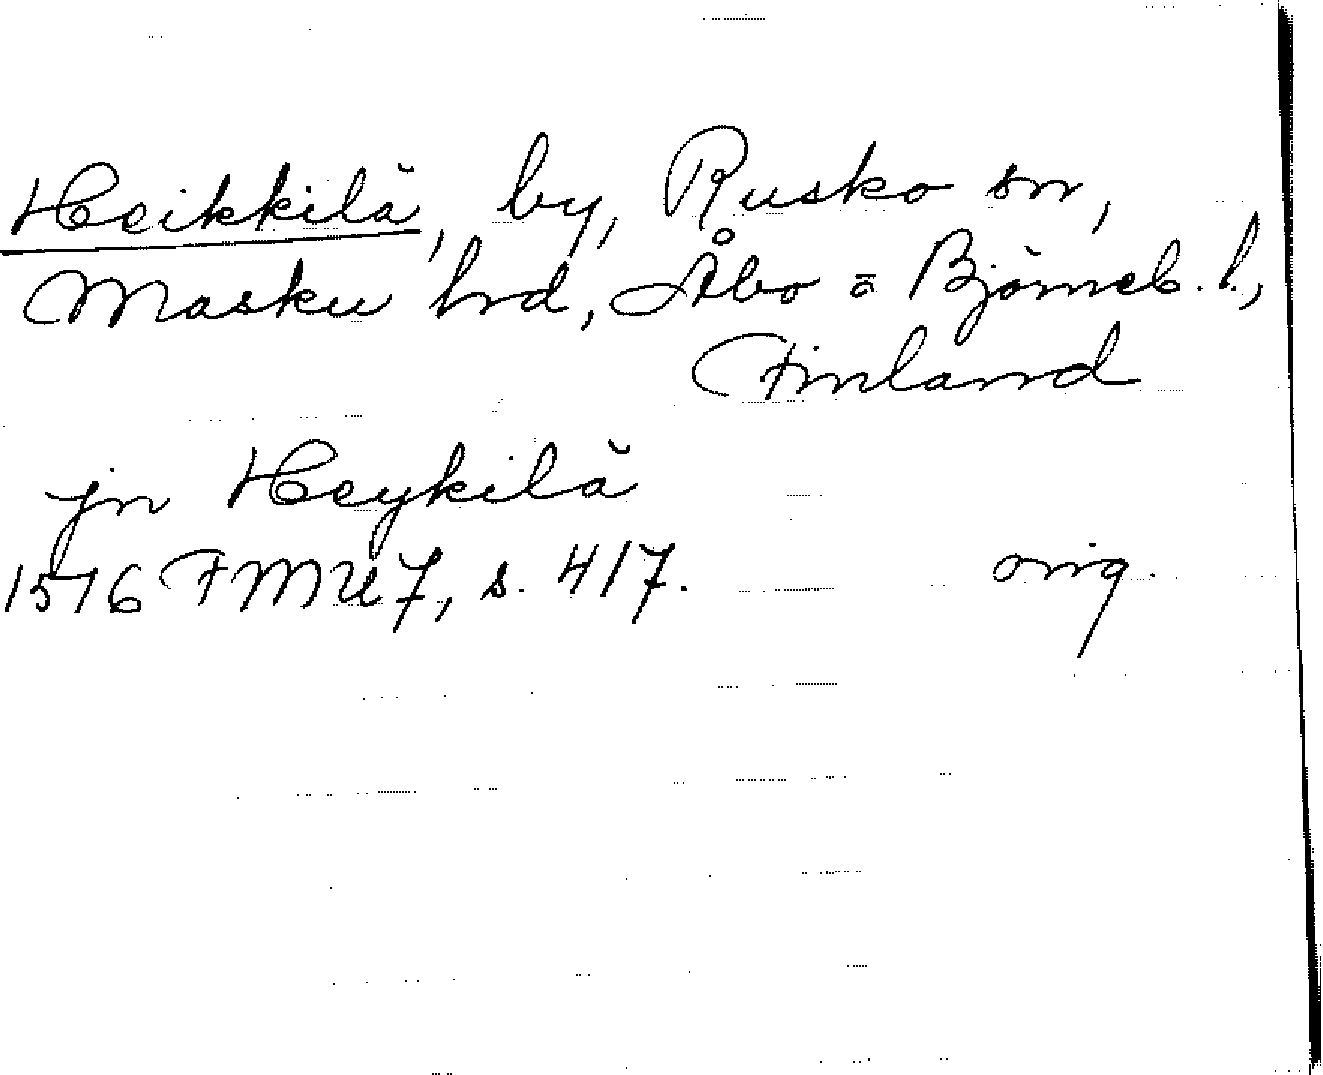 Heikkilä, by, Rusko sn,
Masku hrd, Åbo o Björneb. l.,
Finland
jn Heykilä
1516 FMU 7, s. 417. orig.